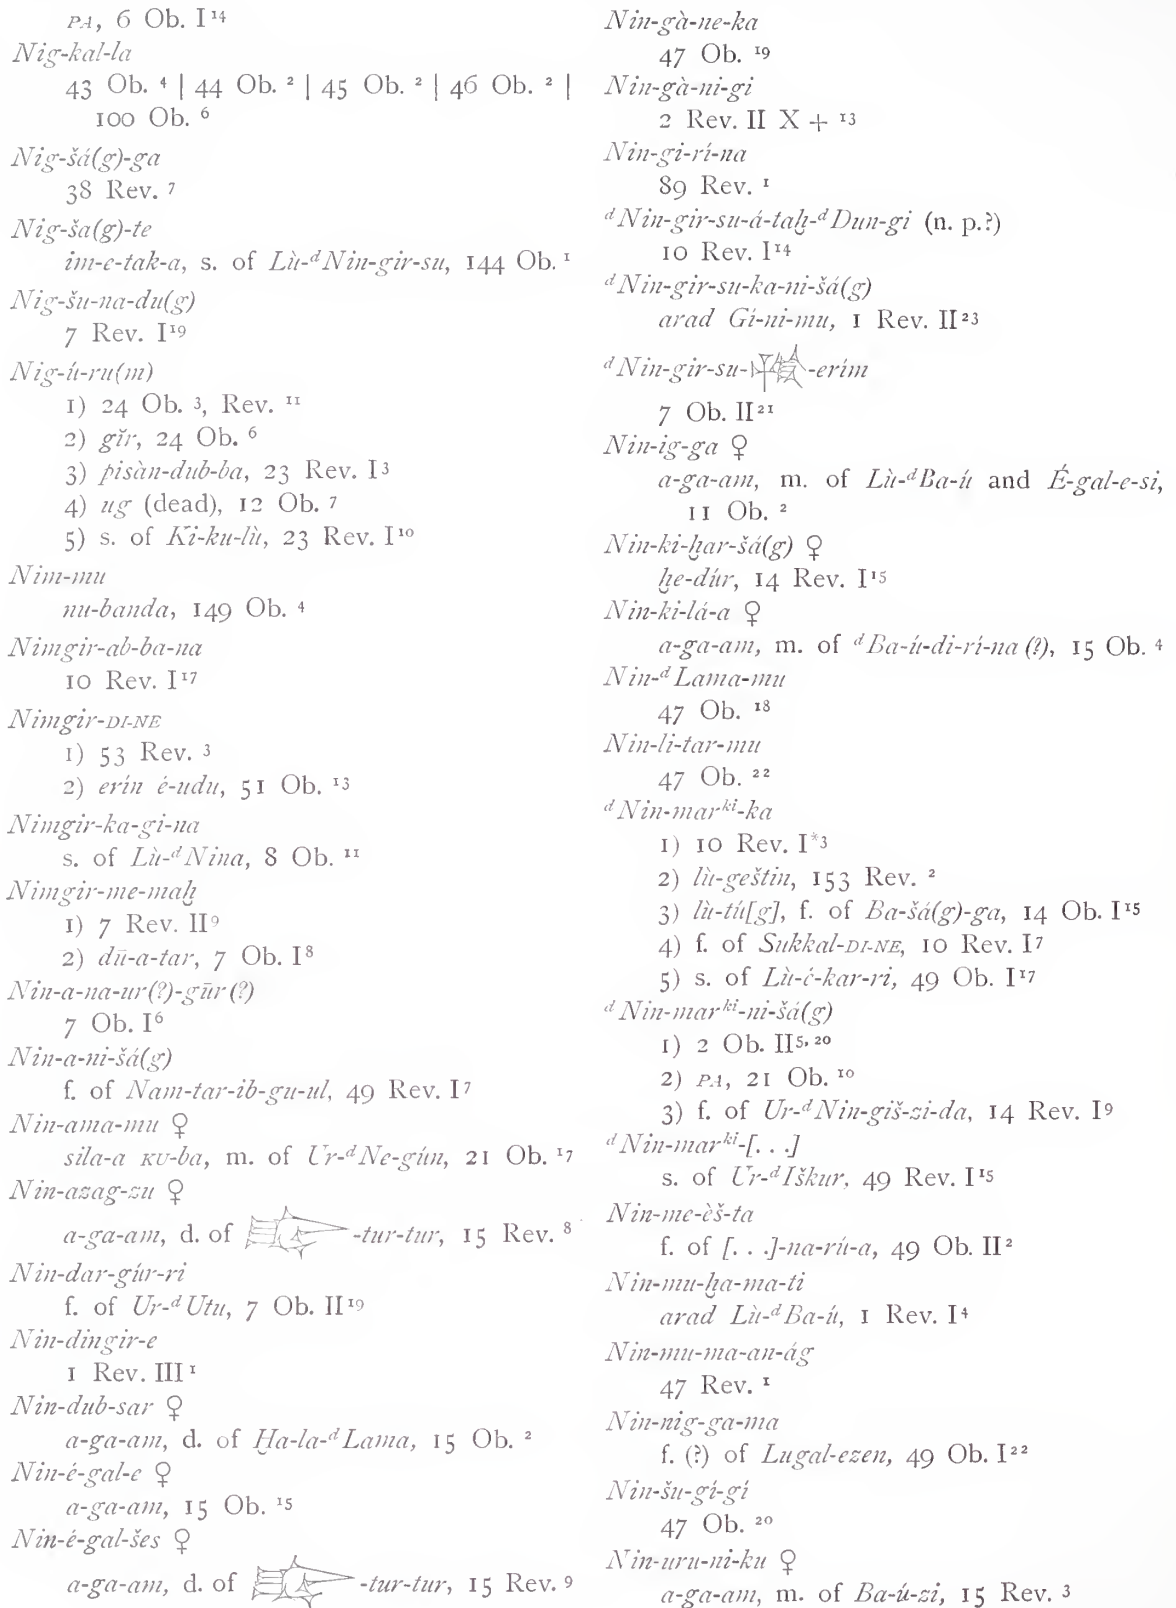 PA, 6 Ob. I¹⁴
Nig-kal-la
43 Ob. ⁴ | 44 Ob. ² | 45 Ob. ² | 46 Ob. ² |
100 Ob. ⁶
Nig-šá(g)-ga
38 Rev. ⁷
Nig-ša(g)-te
im-e-tak-a, s. of Lù-ᵈNin-gir-su, 144 Ob. ¹
Nig-šu-na-du(g)
7 Rev. I¹⁹
Nig-ú-ru(m)
1) 24 Ob. ³, Rev. ¹¹
2) gĭr, 24 Ob. ⁶
3) pisàn-dub-ba, 23 Rev. I³
4) ug (dead), 12 Ob. ⁷
5) s. of Ki-ku-lù, 23 Rev. I¹⁰
Nim-mu
nu-banda, 149 Ob. ⁴
Nimgir-ab-ba-na
10 Rev. I¹⁷
Nimgir-DI-NE
1) 53 Rev. ³
2) erín é-udu, 51 Ob. ¹³
Nimgir-ka-gi-na
s. of Lù-ᵈNina, 8 Ob. ¹¹
Nimgir-me-maḫ
1) 7 Rev. II⁹
2) dū-a-tar, 7 Ob. I⁸
Nin-a-na-ur(?)-gūr(?)
7 Ob. I⁶
Nin-a-ni-šá(g)
f. of Nam-tar-ib-gu-ul, 49 Rev. I⁷
Nin-ama-mu ♀
sila-a KU-ba, m. of Ur-ᵈNe-gún, 21 Ob. ¹⁷
Nin-azag-zu ♀
a-ga-am, d. of -tur-tur, 15 Rev. ⁸
Nin-dar-gúr-ri
f. of Ur-ᵈUtu, 7 Ob. II¹⁹
Nin-dingir-e
1 Rev. III¹
Nin-dub-sar ♀
a-ga-am, d. of Ḫa-la-ᵈLama, 15 Ob. ²
Nin-é-gal-e ♀
a-ga-am, 15 Ob. ¹⁵
Nin-é-gal-šes ♀
a-ga-am, d. of -tur-tur, 15 Rev. ⁹
Nin-gà-ne-ka
47 Ob. ¹⁹
Nin-gà-ni-gi
2 Rev. II X + ¹³
Nin-gi-rí-na
89 Rev. ¹
ᵈNin-gir-su-á-taḫ-ᵈDun-gi (n. p.?)
10 Rev. I¹⁴
ᵈNin-gir-su-ka-ni-šá(g)
arad Gí-ni-mu, 1 Rev. II²³
ᵈNin-gir-su- -erím
7 Ob. II²¹
Nin-ig-ga ♀
a-ga-am, m. of Lù-ᵈBa-ú and É-gal-e-si,
11 Ob. ²
Nin-ki-ḫar-šá(g) ♀
ḫe-dúr, 14 Rev. I¹⁵
Nin-ki-lá-a ♀
a-ga-am, m. of ᵈBa-ú-di-rí-na (?), 15 Ob. ⁴
Nin-ᵈLama-mu
47 Ob. ¹⁸
Nin-li-tar-mu
47 Ob. ²²
ᵈNin-marᵏⁱ-ka
1) 10 Rev. I*³
2) lù-geštin, 153 Rev. ²
3) lù-tú[g], f. of Ba-šá(g)-ga, 14 Ob. I¹⁵
4) f. of Sukkal-DI-NE, 10 Rev. I⁷
5) s. of Lù-é-kar-ri, 49 Ob. I¹⁷
ᵈNin-marᵏⁱ-ni-šá(g)
1) 2 Ob. II⁵, ²⁰
2) PA, 21 Ob. ¹⁰
3) f. of Ur-ᵈNin-giš-zi-da, 14 Rev. I⁹
ᵈNin-marᵏⁱ-[. . .]
s. of Ur-ᵈIškur, 49 Rev. I¹⁵
Nin-me-èš-ta
f. of [. . .]-na-rú-a, 49 Ob. II²
Nin-mu-ḫa-ma-ti
arad Lù-ᵈBa-ú, 1 Rev. I⁴
Nin-mu-ma-an-ág
47 Rev. ¹
Nin-nig-ga-ma
f. (?) of Lugal-ezen, 49 Ob. I²²
Nin-šu-gí-gí
47 Ob. ²⁰
Nin-uru-ni-ku ♀
a-ga-am, m. of Ba-ú-zi, 15 Rev. ³